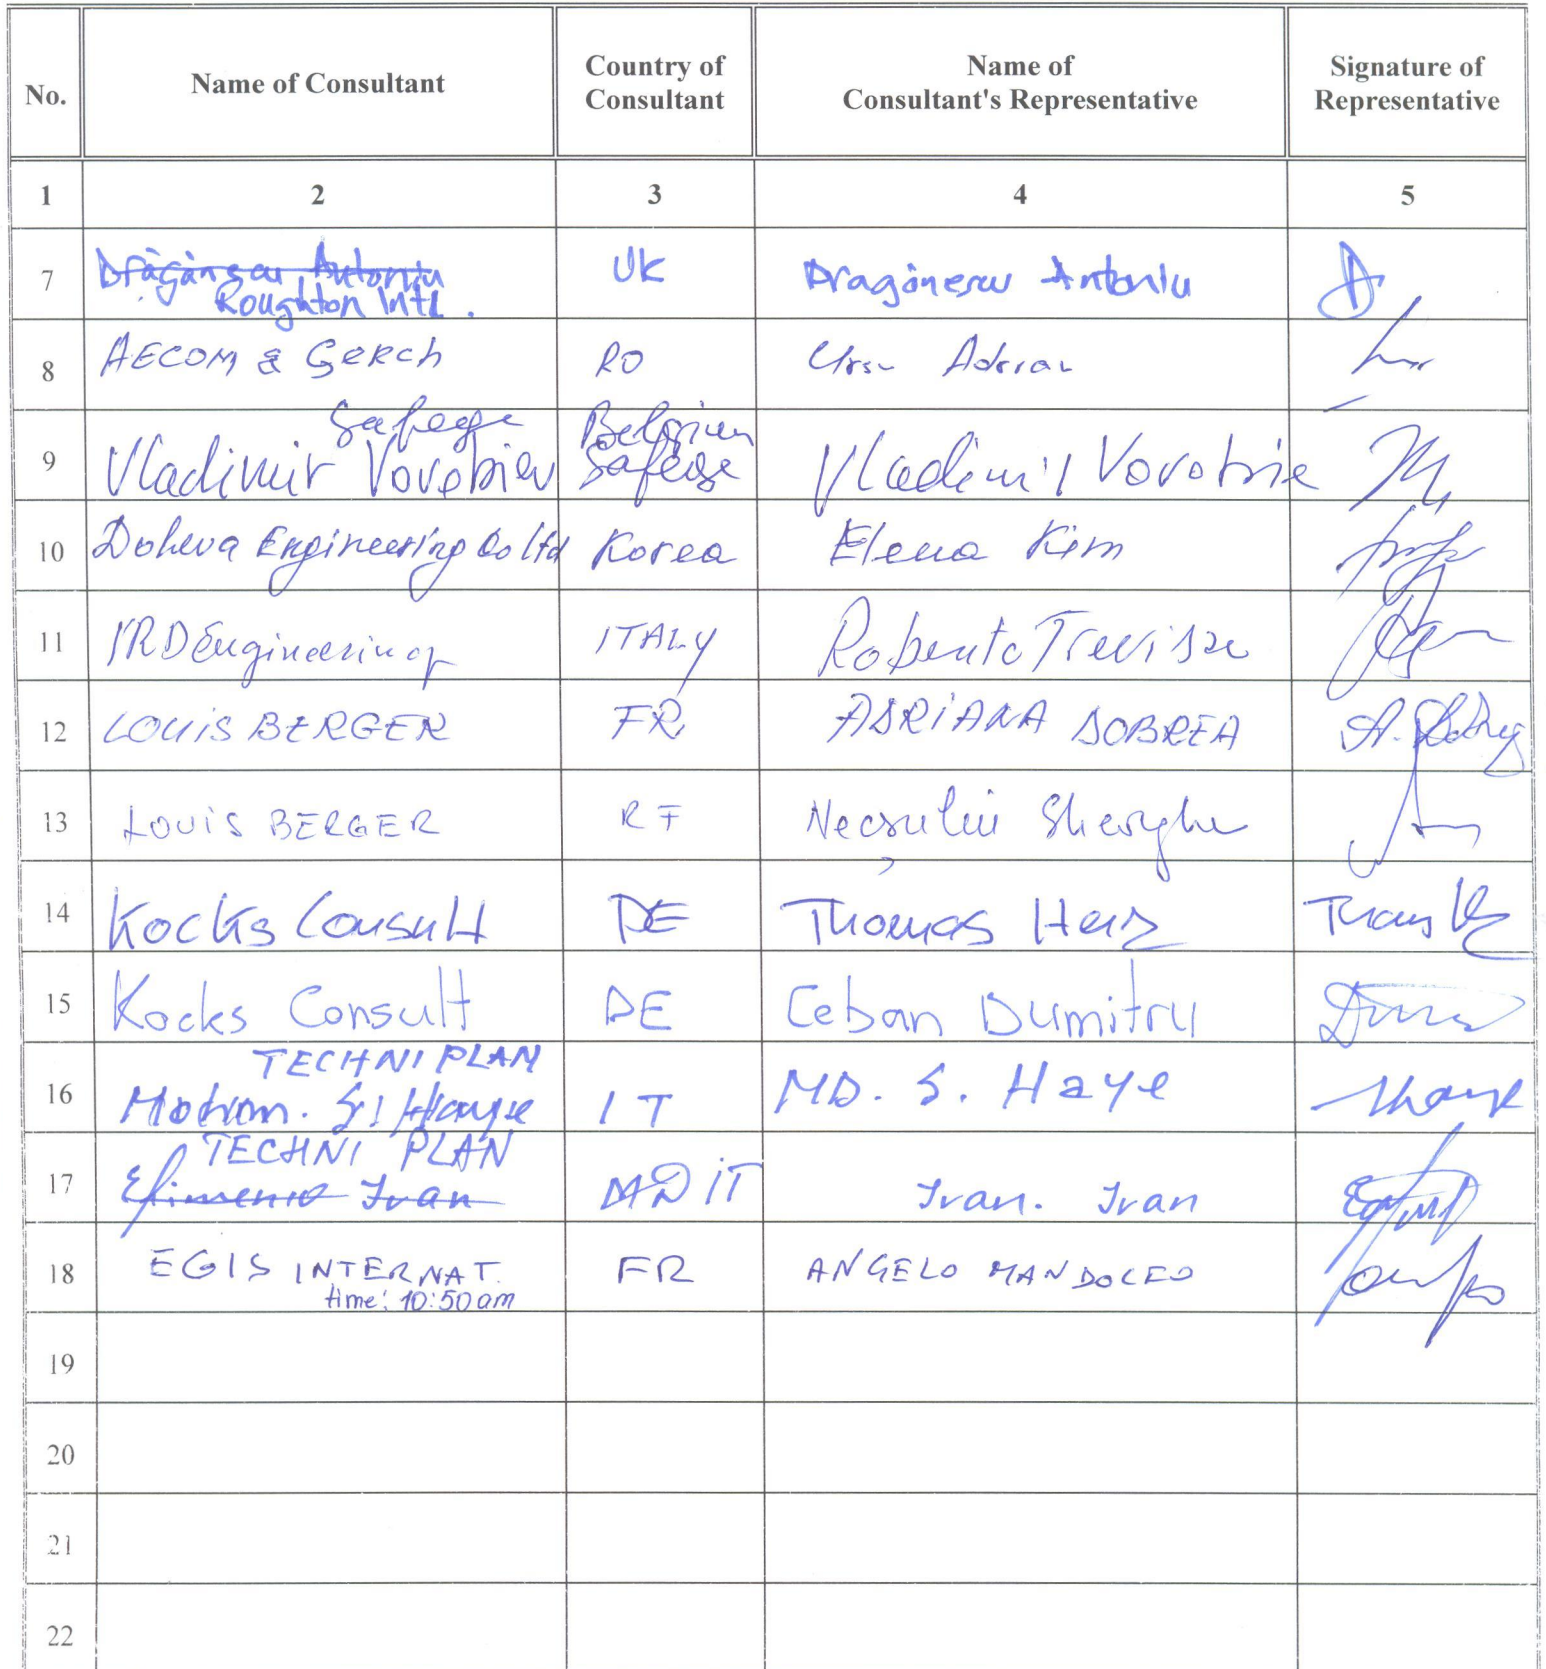 No. Name of Consultant Country of Consultant Name of Consultant's Representative Signature of Representative
1 2 3 4 5
7 Drăgănescu Antoniu UK Dragănescu Antoniu
Roughton Intl.
8 AECOM & Gerch RO Ursu Adrian
Safege Belgium
9 Vladimir Vorobiev Safege Vladimir Vorobie
10 Dohwa Engineering Co ltd Korea Elena Kim
11 IRD Engineering ITALY Roberto Trevisan
12 LOUIS BERGER FR ADRIANA DOBREA
13 LOUIS BERGER RF Gheorghe
14 Kocks Consult DE Thomas Herz
15 Kocks Consult DE Ceban Dumitru
TECHNIPLAN
16 IT MD. S. Haye
TECHNI PLAN
17 Efimenco Ivan MD IT Ivan. Ivan
18 EGIS INTERNAT. FR ANGELO MANDOLEO
time: 10:50 am
19
20
21
22